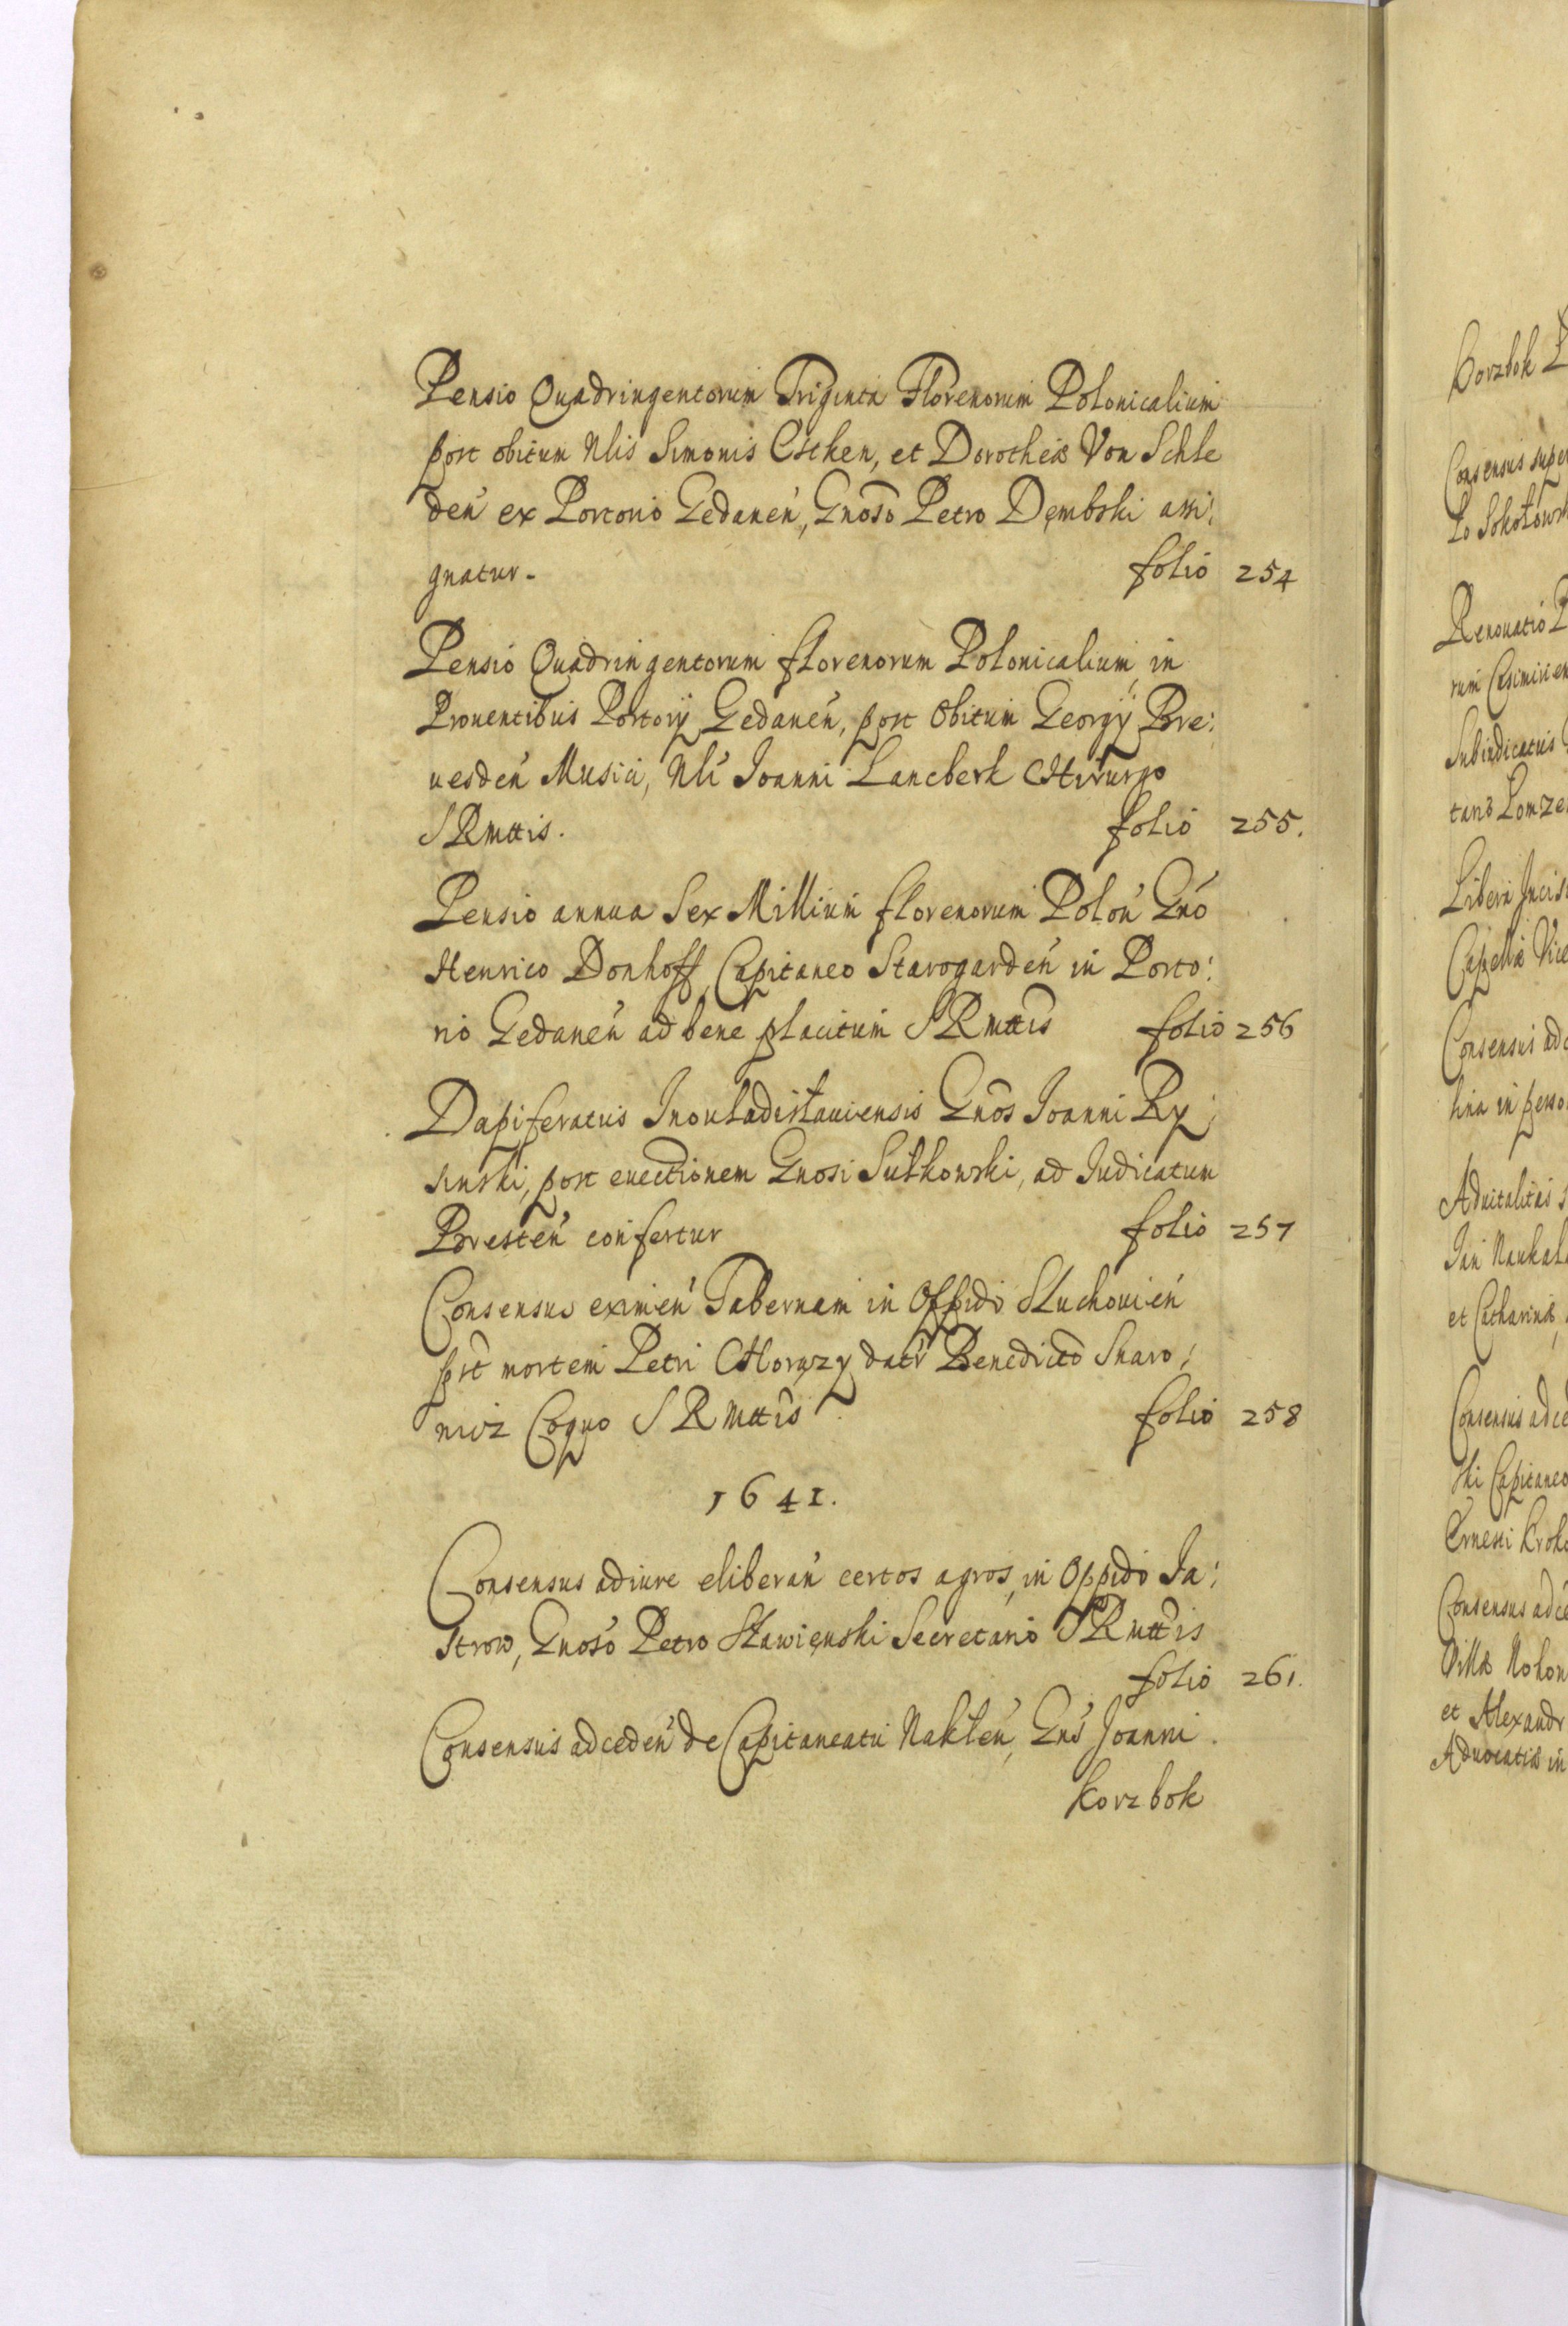 Pensio Quadringentorum Triginta Florenorum Polonicalium
post obitum Nlis Simonis Escken, et Dorotheæ Von Schle
deń ex Portorio Gedaneń, Gnoso Petro Dęmbski assi:
gnatur. folio 254
Pensio Quadringentorum florenorum Polonicalium, in
Prouentibus Portorÿ Gedaneń, post Obitum Georgÿ Bre:
uesdeń Musici, Nli Joanni Lancberk Chirurgo
SRMttis. folio 255.
Pensio annua Sex Millium florenorum Poloń Gno
Henrico Donhoff, Capitaneo Starogardeń in Porto:
rio Gedaneń ad bene placitum SRMttis folio 256
Dapiferatus Inouladislauiensis Gnos Joanni Ry:
sinski, post euectionem Gnosi Sułkowski, ad Judicatum
Bresteń confertur folio 257
Consensus eximeń Tabernam in Oppido Sluchouień
post mortem Petri Chorązy datr Benedicto Snaro:
wicz Coquo SRMttis folio 258
1641.
Consensus ad iure eliberań certos agros, in Oppido Ja:
strow, Gnoso Petro Sławięnski Secretario SRMttis
folio 261.
Consensus ad cedeń de Capitaneatu Nakłeń, Gns Joanni
Korzbok
Korzbok
Consensus super
Sokołows
Renouatio
rum Casimirien
Subiudicatus
Liberi
Capellæ Vice
Consensus ad
lina in perso
Aduitalitas
et Catharinæ,
Consensus ad ce
ski Capitaneo
Ernesti Kroko
Consensus ad ce
Villæ
et Alexandr
Aduocatiæ in